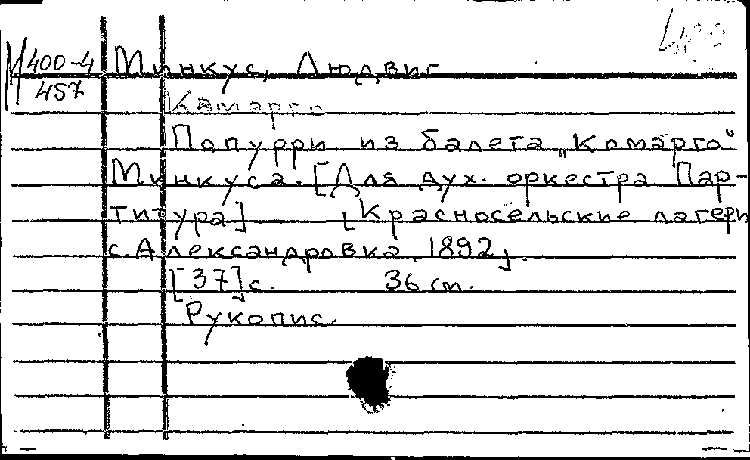 М 400-4 Минкус, Людвиг
457
Камарго
Попурри из балета „Комарго"
Минкуса. [Для дух. оркестра Пар-
титура] [Красносельские лагери
с. Александровка, 1892].
[37] с. 36 см.
Рукопис.